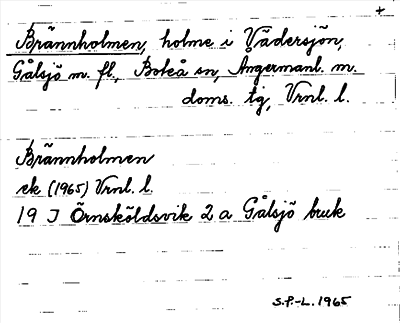 +
Brännholmen, holme i Vädersjön,
Gålsjö m. fl., Boteå sn, Ångermanl. m.
doms. tg, Vrnl. l.
Brännholmen
ek (1965) Vrnl. l.
19 J Örnsköldsvik 2 a Gålsjö bruk
S.P.-L. 1965